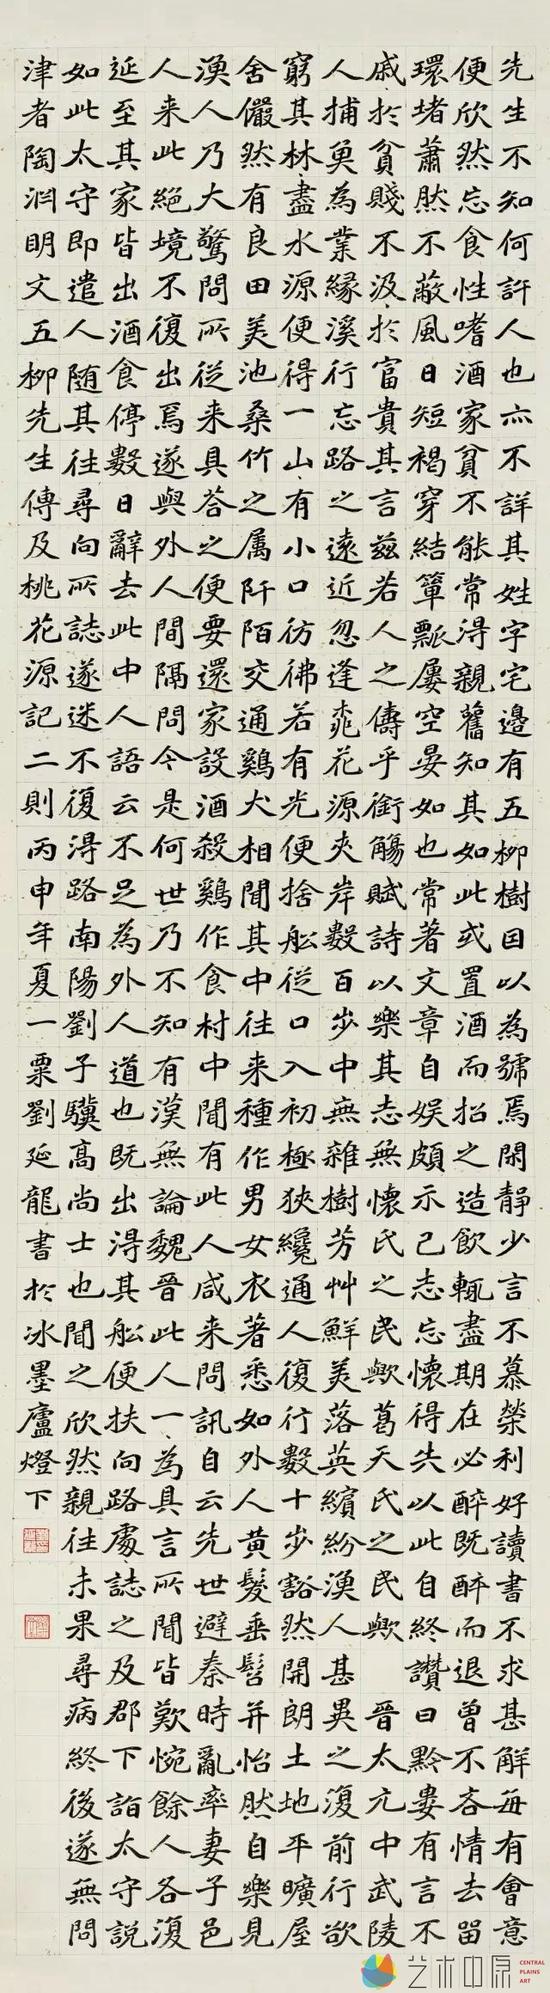 先生不知何許人也亦不詳其姓字宅邊有五柳樹因以為號焉閑靜少言不慕榮利好讀書不求甚解每有會意
便欣然忘食性嗜酒家貧不能常得親舊知其如此或置酒而招之造飲輒盡期在必醉既醉而退曾不吝情去留
環堵蕭然不蔽風日短褐穿結簞瓢屢空晏如也常著文章自娛頗示己志忘懷得失以此自終讚曰黔婁有言不
戚々於貧賤不汲々於富貴其言茲若人之儔乎銜觴賦詩以樂其志無懷氏之民歟葛天氏之民歟 晉太元中武陵
人捕魚為業緣溪行忘路之遠近忽逢桃花源夾岸數百步中無雜樹芳艸鮮美落英繽紛漁人甚異之復前行欲
窮其林々盡水源便得一山々有小口彷彿若有光便捨船從口入初極狹纔通人復行數十步豁然開朗土地平曠屋
舍儼然有良田美池桑竹之属阡陌交通鷄犬相聞其中往来種作男女衣著悉如外人黃髮垂髫并怡然自樂見
漁人乃大驚問所從来具答之便要還家設酒殺鷄作食村中聞有此人咸来問訊自云先世避秦時亂率妻子邑
人来此絕境不復出焉遂與外人間隔問今是何世乃不知有漢無論魏晉此人一々為具言所聞皆歎惋餘人各復
延至其家皆出酒食停數日辭去此中人語云不足為外人道也既出得其船便扶向路處誌之及郡下詣太守說
如此太守即遣人随其往尋向所誌遂迷不復得路南陽劉子驥高尚士也聞之欣然親往未果尋病終後遂無問
津者陶淵明文五柳先生傳及桃花源記二則丙申年夏一粟劉延龍書於冰墨廬燈下
艺术中原
CENTRAL
PLAINS
ART